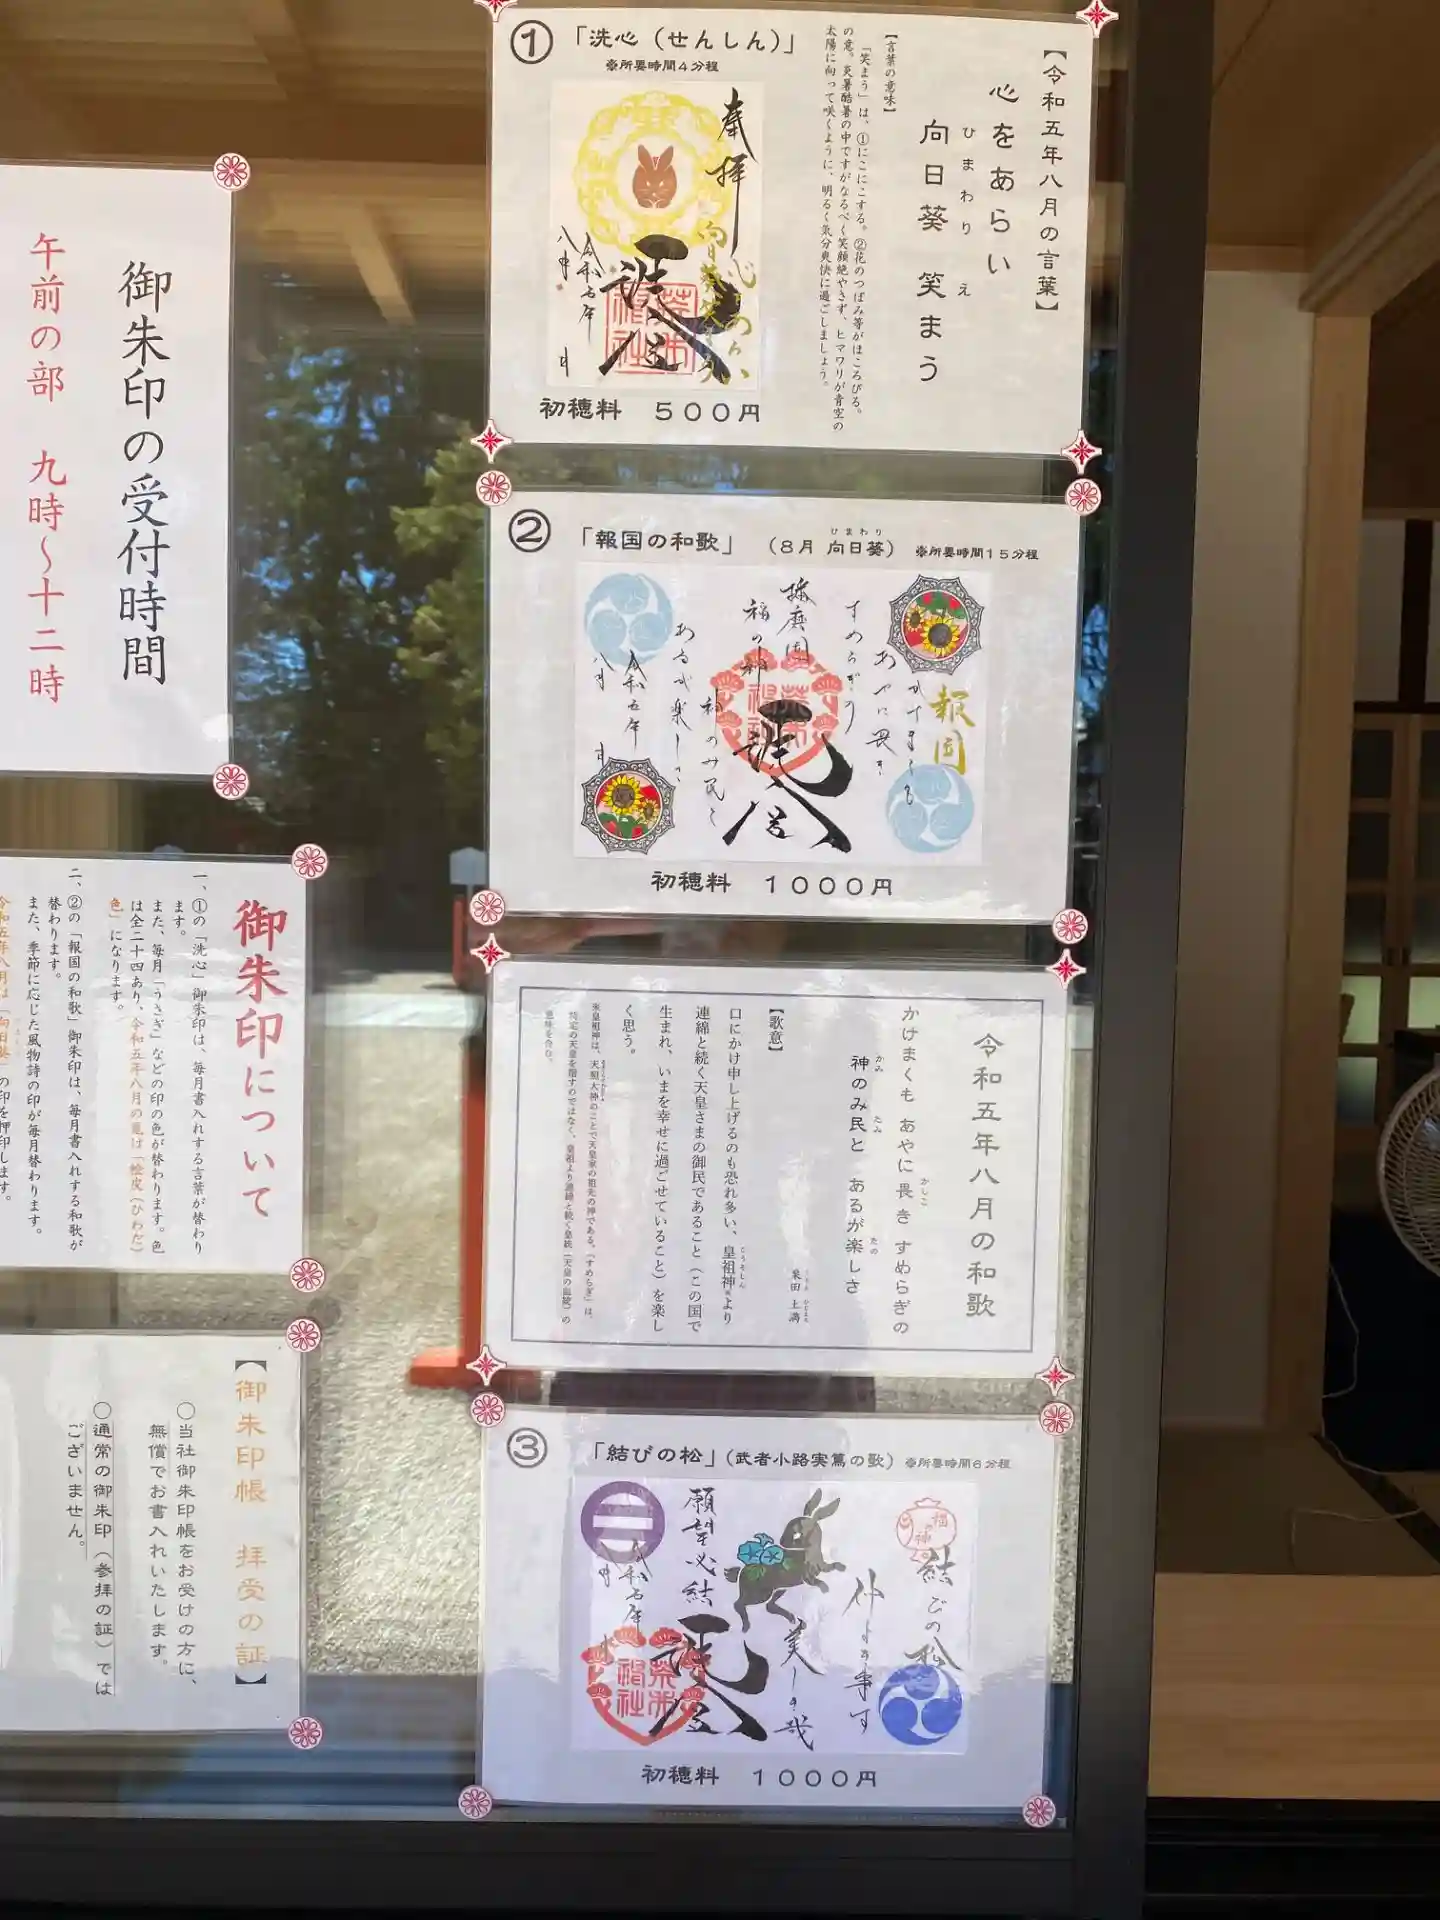 ①「洗心（せんしん）」
※所要時間４分程
奉拝
心をあらい
向日葵笑まう
八月
初穂料　５００円
【令和五年八月の言葉】
心をあらい
向日葵　笑まう
ひまわり　え
【言葉の意味】
「笑まう」は、①にこにこする。②花のつぼみ等がほころびる。
の意。炎暑酷暑の中ですがなるべく笑顔絶やさず、ヒマワリが青空の
太陽に向って咲くように、明るく気分爽快に過ごしましょう。
②「報国の和歌」（８月 向日葵）※所要時間１５分程
ひまわり
報国
かけまくも
あやに畏き
すめらぎの
播磨国
福の神
神のみ民と
あるが楽しさ
令和五年
八月
初穂料　１０００円
令和五年八月の和歌
かけまくも あやに畏き すめらぎの
かしこ
神のみ民と あるが楽しさ
かみ　たみ　たの
【歌意】
口にかけ申し上げるのも恐れ多い、皇祖神※より
こうそしん
連綿と続く天皇さまの御民であること（この国で
生まれ、いまを幸せに過ごせていること）を楽し
く思う。
※皇祖神は、天照大神のことで天皇家の祖先の神である。「すめらぎ」は、
特定の天皇を指すのではなく、皇祖より連綿と続く皇統（天皇の血統）の
意味を含む。
③「結びの松」（武者小路実篤の歌）※所要時間６分程
福の神
結びの松
仲よき事は
美しき哉
願望必結
初穂料　１０００円
御朱印の受付時間
午前の部　九時〜十二時
御朱印について
一、①の「洗心」御朱印は、毎月書入れする言葉が替わり
ます。
また、毎月「うさぎ」などの印の色が替わります。色
は全二十四あり、令和五年八月の兎は「桧皮（ひわだ）
色」になります。
二、②の「報国の和歌」御朱印は、毎月書入れする和歌が
替わります。
また、季節に応じた風物詩の印が毎月替わります。
令和五年八月は「向日葵」の印を押印します。
【御朱印帳　拝受の証】
○当社御朱印帳をお受けの方に、
無償でお書入れいたします。
○通常の御朱印（参拝の証）では
ございません。